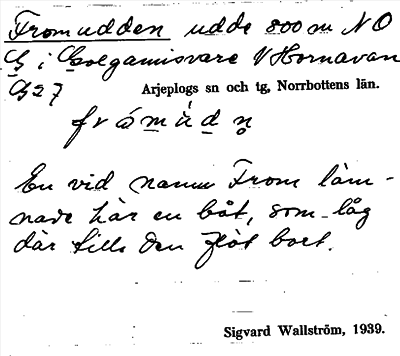 Fromudden udde 800 m NO
G i Golgamisvare V Hornavan
G 27
Arjeplogs sn och tg, Norrbottens län.
En vid namn From läm-
nade här en båt, som låg
där tills den flöt bort.
Sigvard Wallström, 1939.